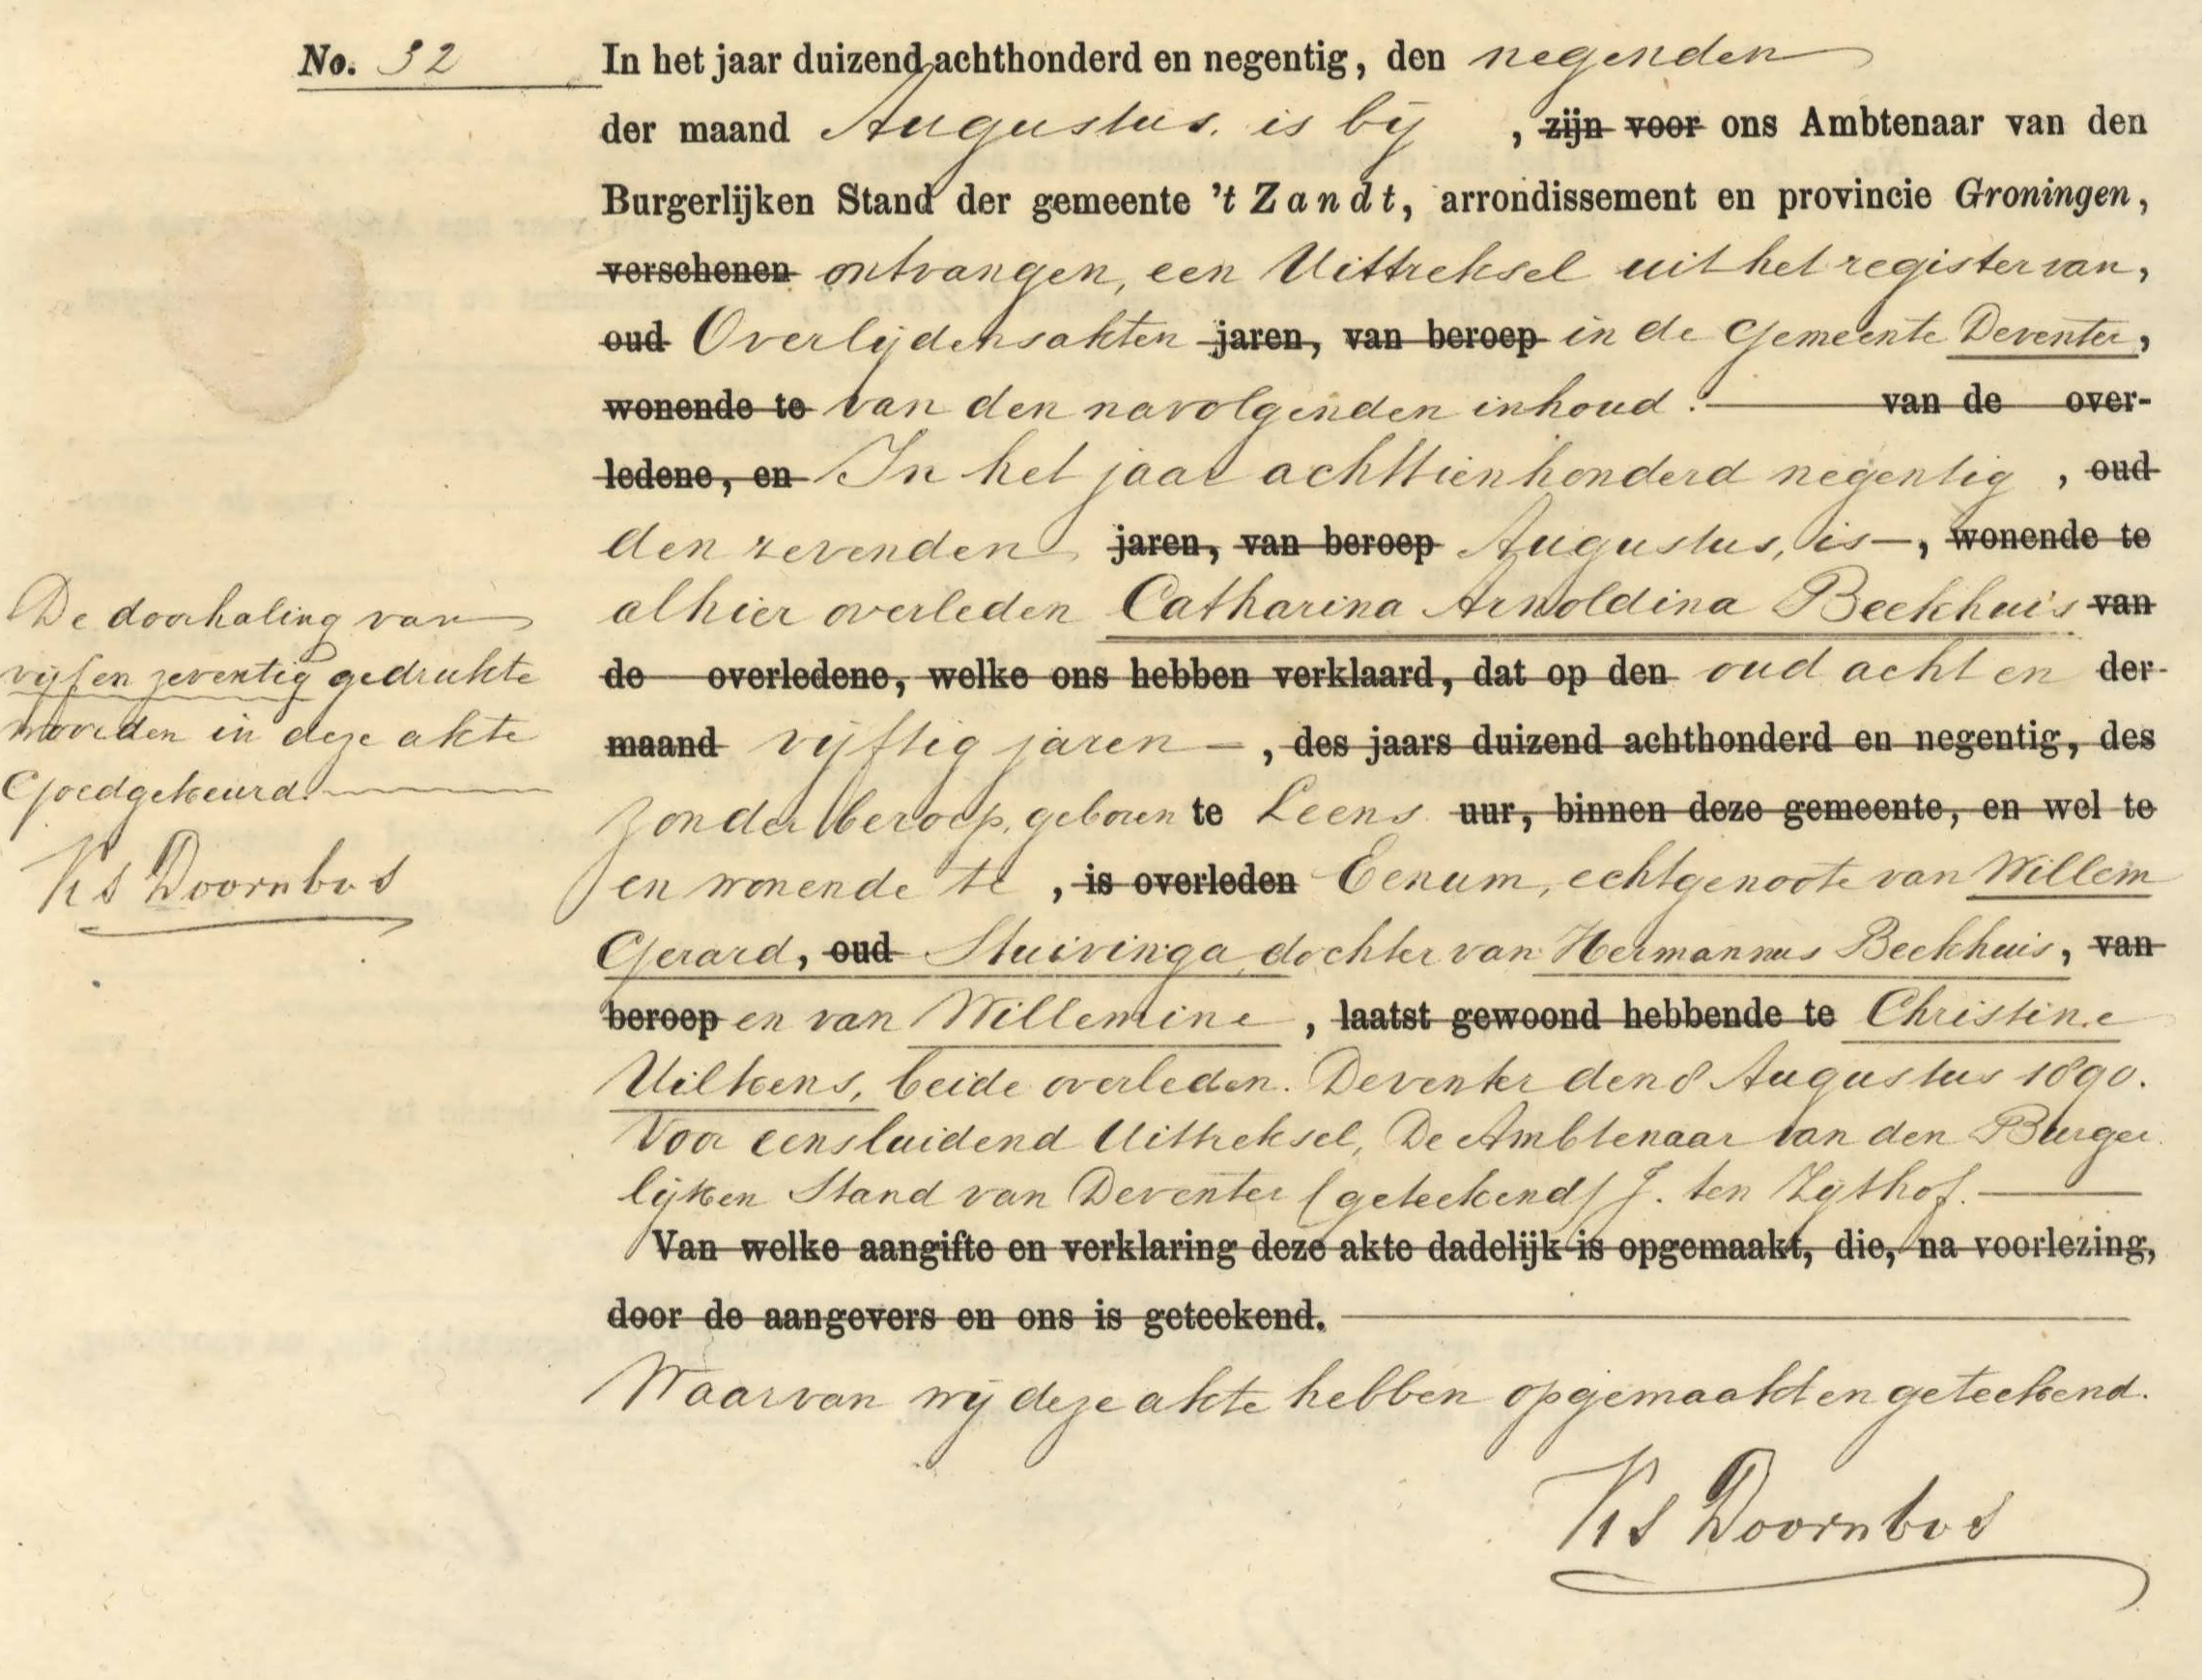 No. 32
In het jaar duizend achthonderd en negentig, den negenden
der maand Augustus, is bij , zijn voor ons Ambtenaar van den
Burgerlijken Stand der gemeente 't Zandt, arrondissement en provincie Groningen,
verschenen ontvangen, een Uittreksel uit het register van,
oud Overlijdensakten jaren, van beroep in de Gemeente Deventer,
wonende te van den navolgenden inhoud: van de over-
ledene, en In het jaar achttienhonderd negentig , oud
den zevenden jaren, van beroep Augustus, is , wonende te
alhier overleden Catharina Arnoldina Beekhuis van
de overledene, welke ons hebben verklaard, dat op den oud acht en der
maand vijftig jaren , des jaars duizend achthonderd en negentig, des
zonder beroep, geboren te Leens uur, binnen deze gemeente, en wel te
en wonende te , is overleden Eenum, echtgenoote van Willem
Gerard, oud Stuivinga dochter van Hermannus Beekhuis, van
beroep en van Willemine , laatst gewoond hebbende te Christine
Uilkens, beide overleden. Deventer den 8 Augustus 1890.
Voor eensluidend Uittreksel, De Ambtenaar van den Burger
lijken Stand van Deventer (geteekend) J. ten Zijthof.
Van welke aangifte en verklaring deze akte dadelijk is opgemaakt, die, na voorlezing,
door de aangevers en ons is geteekend.
Waarvan wij deze akte hebben opgemaakt en geteekend.
Ks Doornbos
De doorhaling van
vijf en zeventig gedrukte
woorden in deze akte
Goedgekeurd.
Ks Doornbos